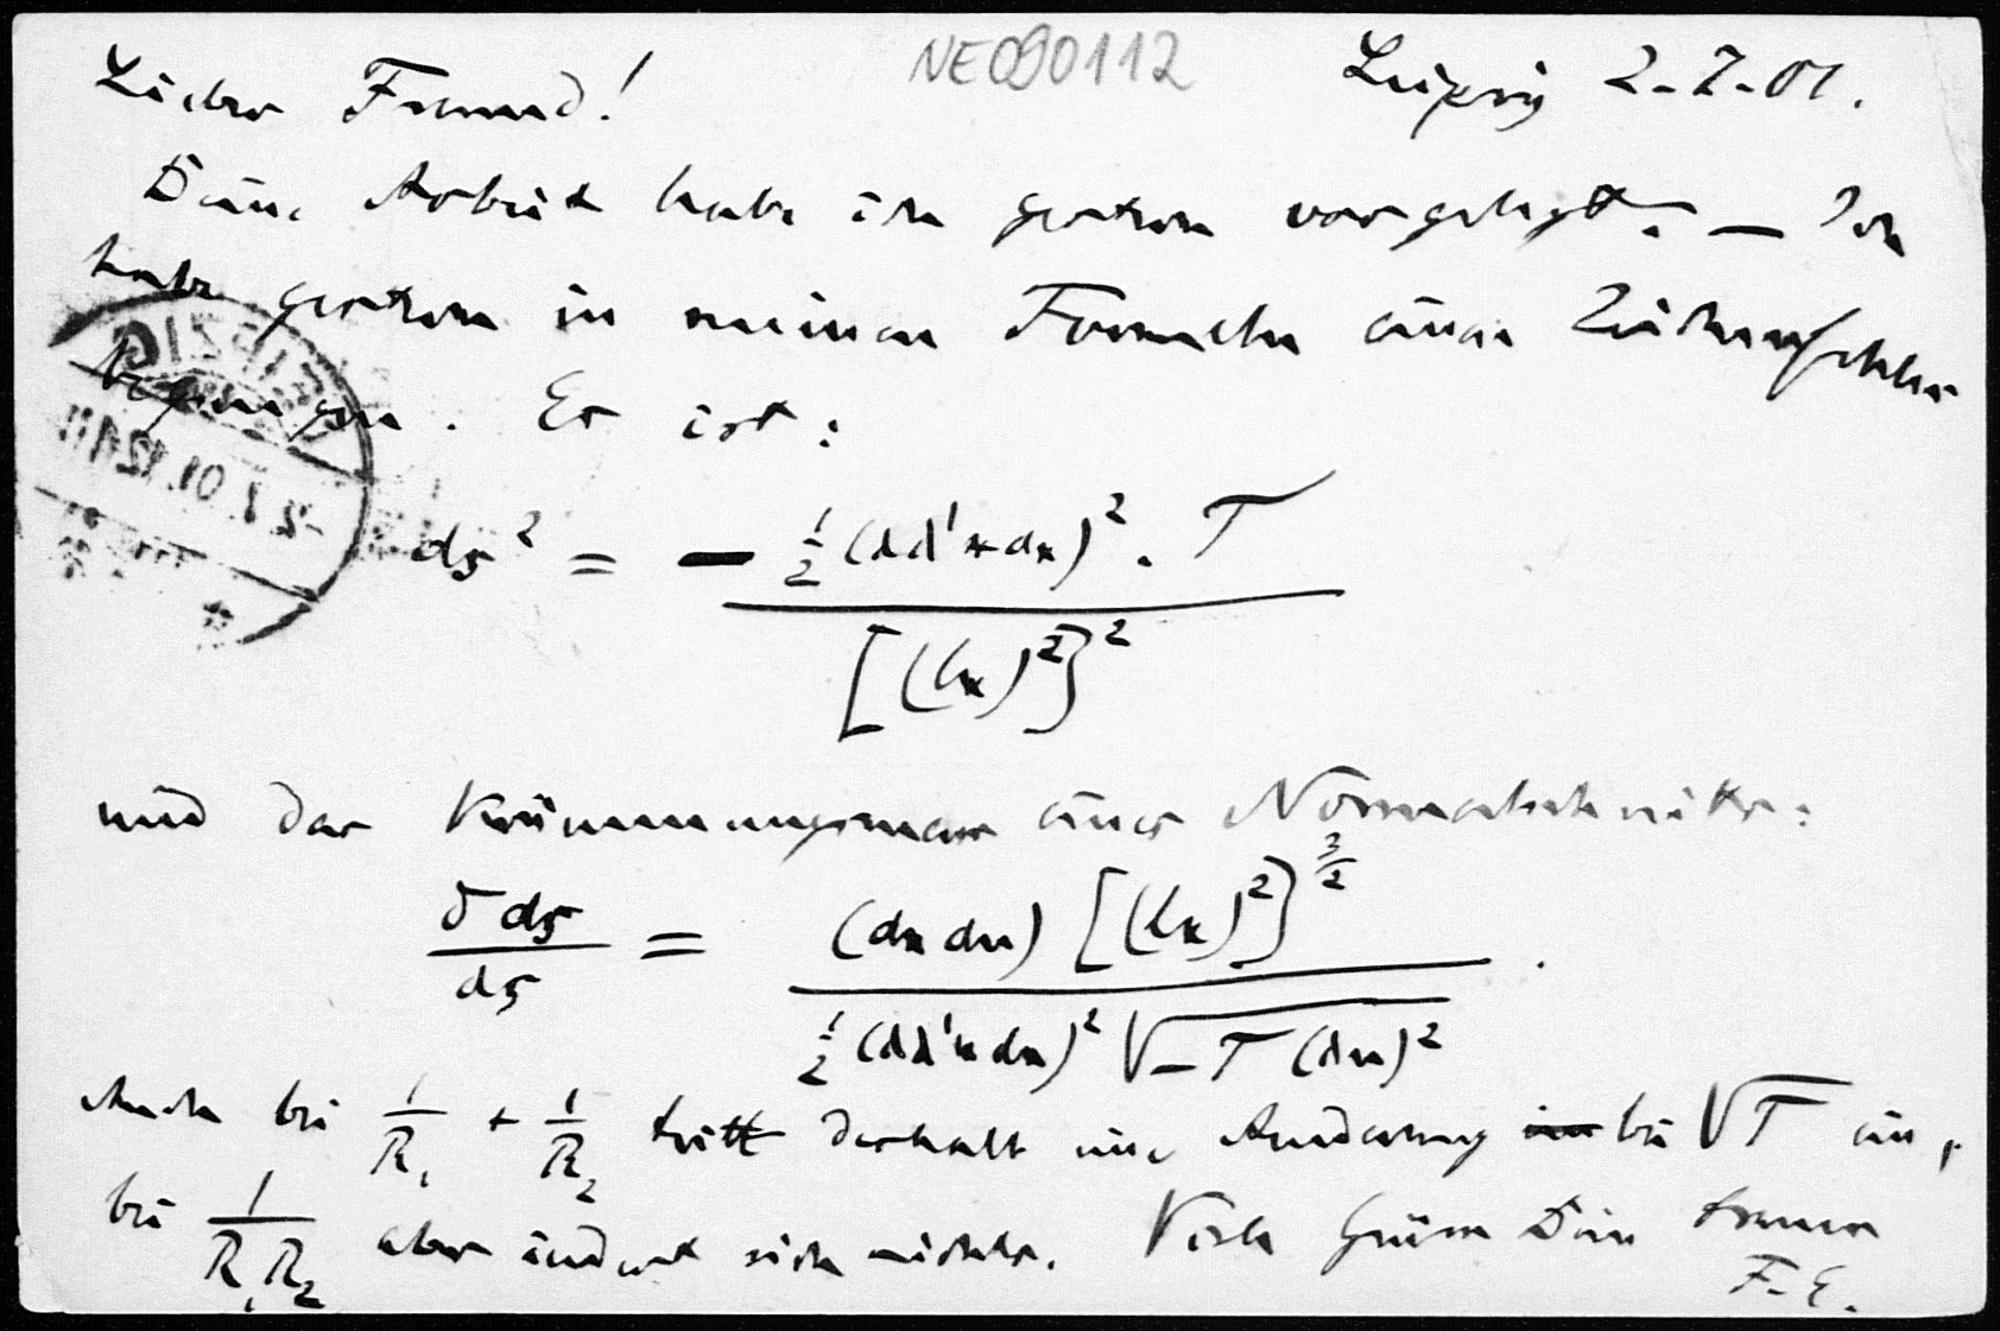 NE090112
Lieber Freund! Leipzig 2.7.01.
Deine Arbeit habe ich gestern vorgelegt. — Ich
habe gestern in meinen Formeln einen Zeichenfehler
begangen. Es ist:
ds² = − ½(λλ'x dx)² . T / [(lx)²]²
und das Krümmungsmass eines Normalschnitts:
δds / ds = (dx du) [(lx)²]^{3/2} / ½(λλ'x dx)² √−T(λu)² .
Auch bei 1/R₁ + 1/R₂ tritt deshalb eine Änderung bei √T ein,
bei 1/R₁R₂ aber ändert sich nichts. Viele Grüsse Dein treuer
F. E.
LEIPZIG